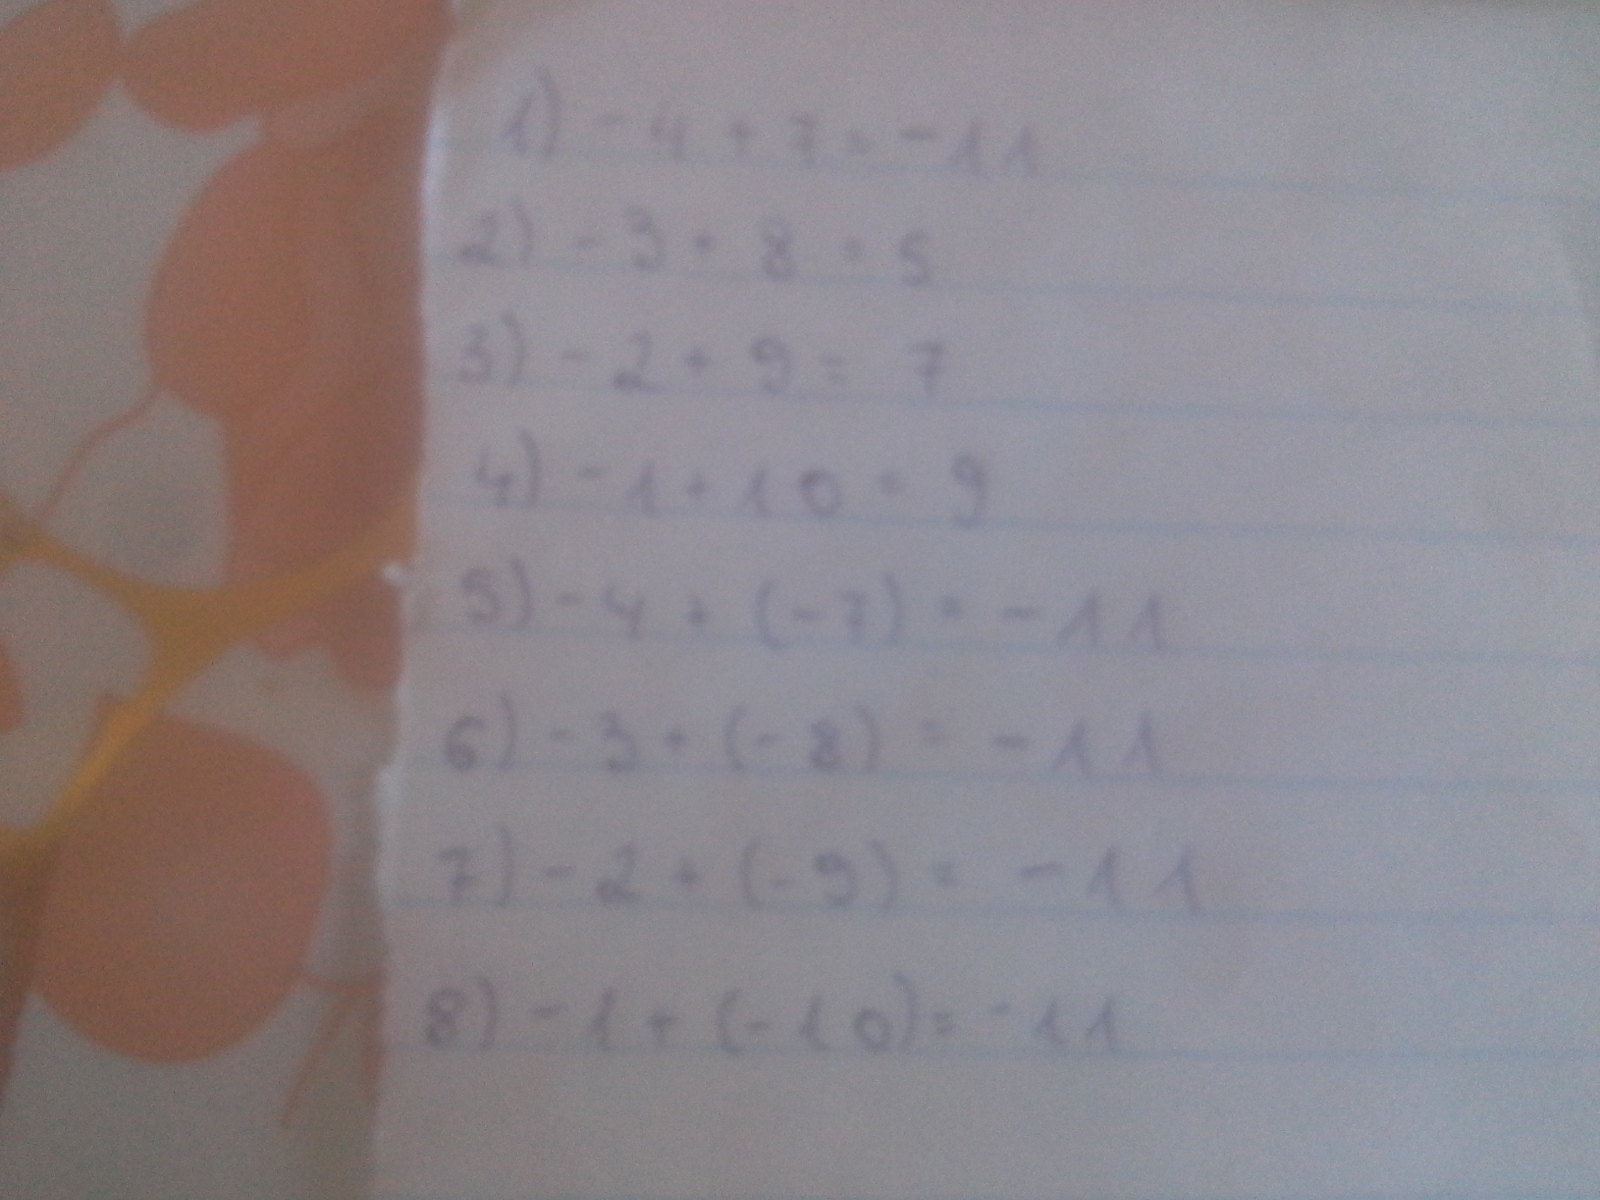 1) -4 + 7 = -11
2) -3 + 8 = 5
3) -2 + 9 = 7
4) -1 + 10 = 9
5) -4 + (-7) = -11
6) -3 + (-8) = -11
7) -2 + (-9) = -11
8) -1 + (-10) = -11